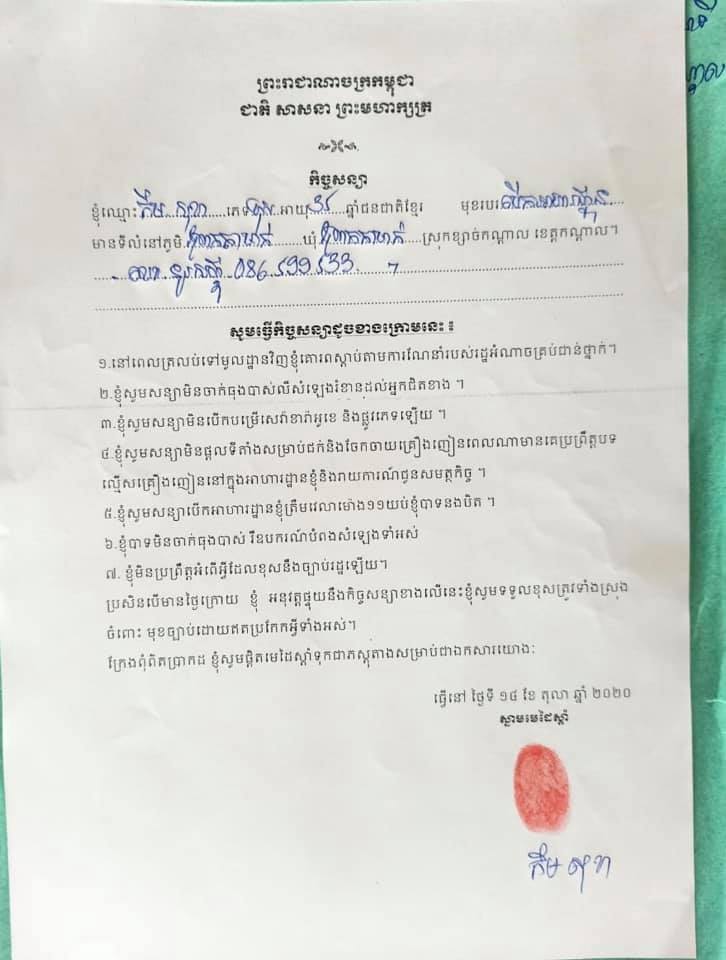 ព្រះរាជាណាចក្រកម្ពុជា
ជាតិ សាសនា ព្រះមហាក្សត្រ
កិច្ចសន្យា
ខ្ញុំឈ្មោះ គឹម សុខា ភេទ អាយុ ឆ្នាំជនជាតិខ្មែរ មុខរបរ
មានទីលំនៅភូមិ ឃុំ ស្រុកខ្សាច់កណ្តាល ខេត្តកណ្តាល។
086.599533
សូមធ្វើកិច្ចសន្យាដូចខាងក្រោមនេះ ៖
១.នៅពេលត្រលប់ទៅមូលដ្ឋានវិញខ្ញុំគោរពស្តាប់តាមការណែនាំរបស់រដ្ឋអំណាចគ្រប់ជាន់ថ្នាក់។
២.ខ្ញុំសូមសន្យាមិនចាក់ធុងបាស់លឺសំឡេងរំខានដល់អ្នកជិតខាង ។
៣.ខ្ញុំសូមសន្យាមិនបើកបម្រើសេវ៉ាខារ៉ាអូខេ និងផ្លូវភេទឡើយ ។
៤.ខ្ញុំសូមសន្យាមិនផ្តលទីតាំងសម្រាប់ជក់និងចែកចាយគ្រឿងញៀនពេលណាមានគេប្រព្រឹត្តបទ
ល្មើសគ្រឿងញៀននៅក្នុងអាហារដ្ឋានខ្ញុំនិងរាយការណ៍ជូនសមត្ថកិច្ច ។
៥.ខ្ញុំសូមសន្យាបើកអាហារដ្ឋានខ្ញុំត្រឹមវេលាម៉ោង១១យប់ខ្ញុំបាទនងបិត ។
៦.ខ្ញុំបាទមិនចាក់ធុងបាស់ រឺឧបករណ៍បំពងសំឡេងទាំអស់
៧. ខ្ញុំមិនប្រព្រឹត្តអំពើអ្វីដែលខុសនឹងច្បាប់រដ្ឋឡើយ។
ប្រសិនបើមានថ្ងៃក្រោយ ខ្ញុំ អនុវត្តផ្ទុយនឹងកិច្ចសន្យាខាងលើនេះខ្ញុំសូមទទួលខុសត្រូវទាំងស្រុង
ចំពោះ មុខច្បាប់ដោយឥតប្រកែកអ្វីទាំងអស់។
ក្រែងពុំពិតប្រាកដ ខ្ញុំសូមផ្តិតមេដៃស្តាំទុកជាភស្តុតាងសម្រាប់ជាឯកសារយោង:
ធ្វើនៅ ថ្ងៃទី ១៤ ខែ តុលា ឆ្នាំ ២០២០
ស្នាមមេដៃស្តាំ
គឹម សុខា